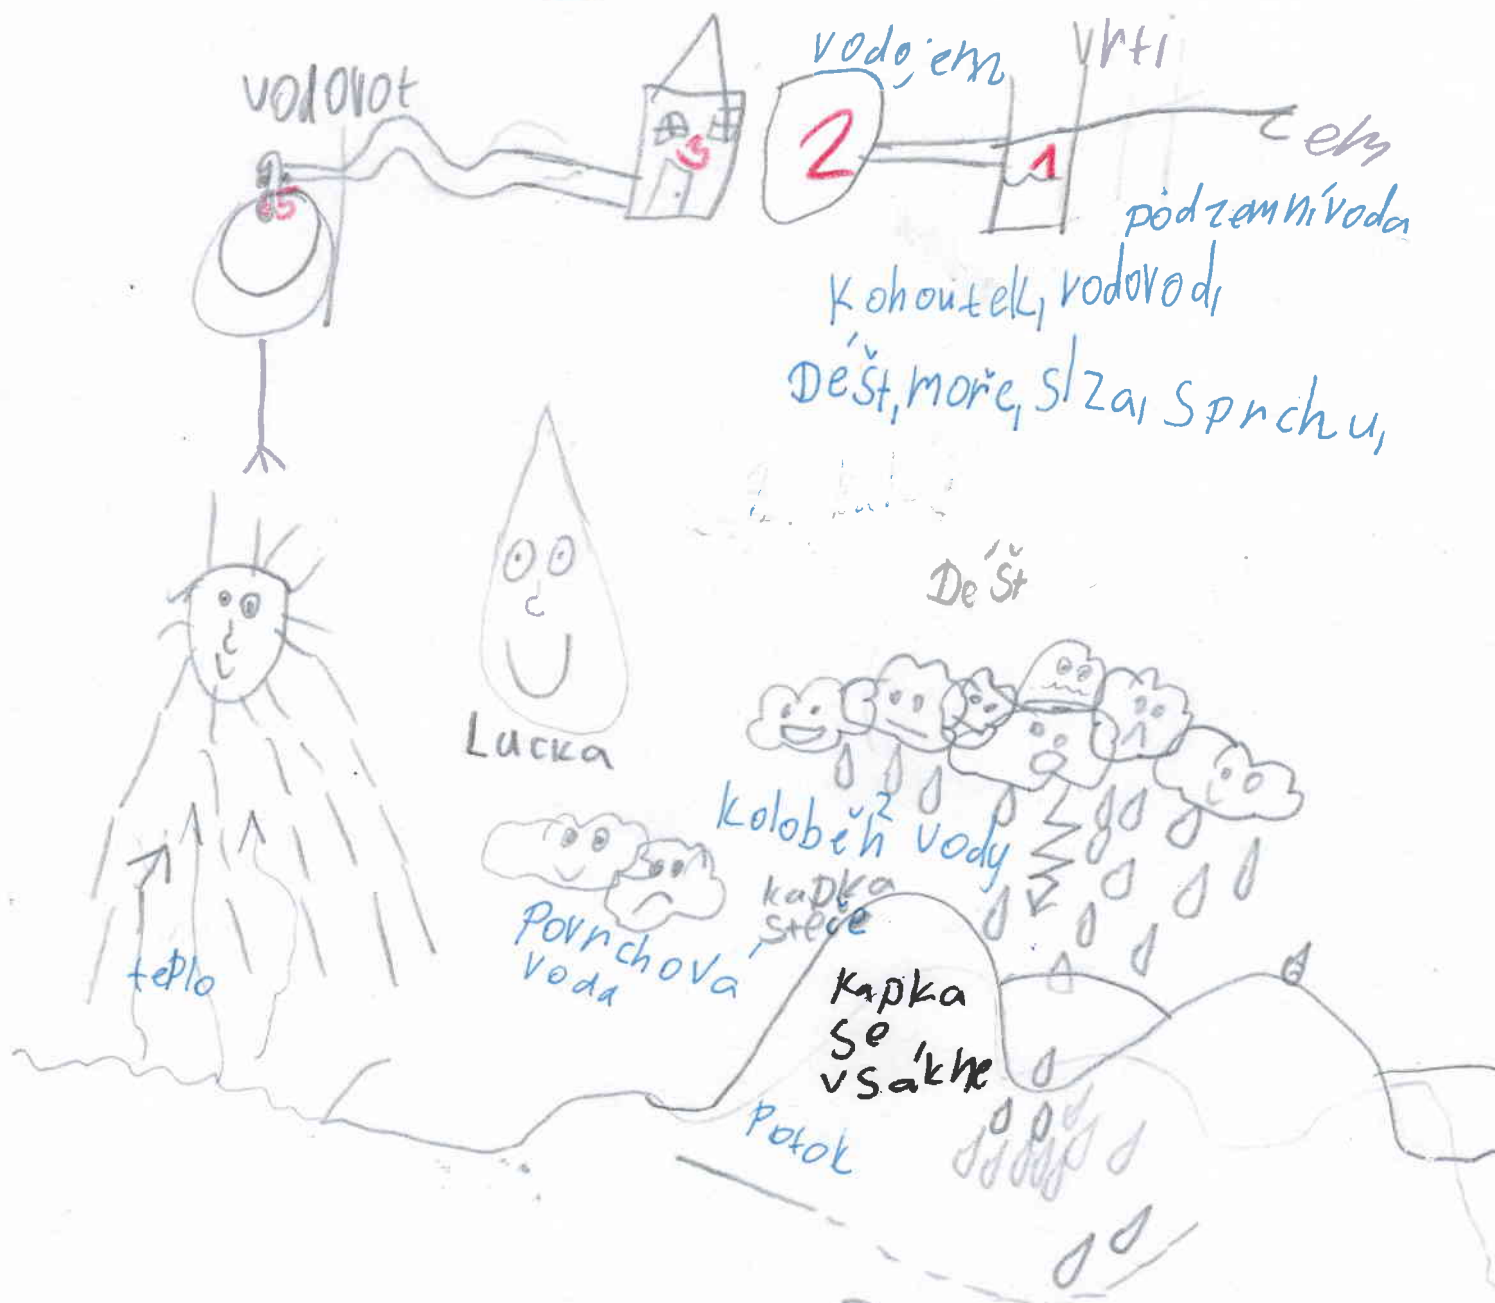 vodovot
vodojem
vrti
zem
3
2
1
5
podzemní voda
kohoutek, vodovod,
Déšt, moře, slza, sprchu,
Déšt
Lucka
koloběh 2 vody
kapka
steče
povrchová
voda
teplo
kapka
se
vsákne
potok